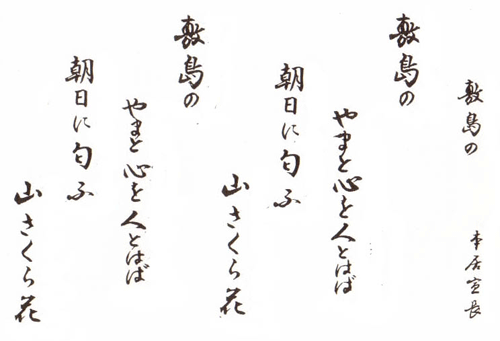 敷島の　本居宣長
敷島の
やまと心を人とはば
朝日に匂ふ
山さくら花
敷島の
やまと心を人とはば
朝日に匂ふ
山さくら花